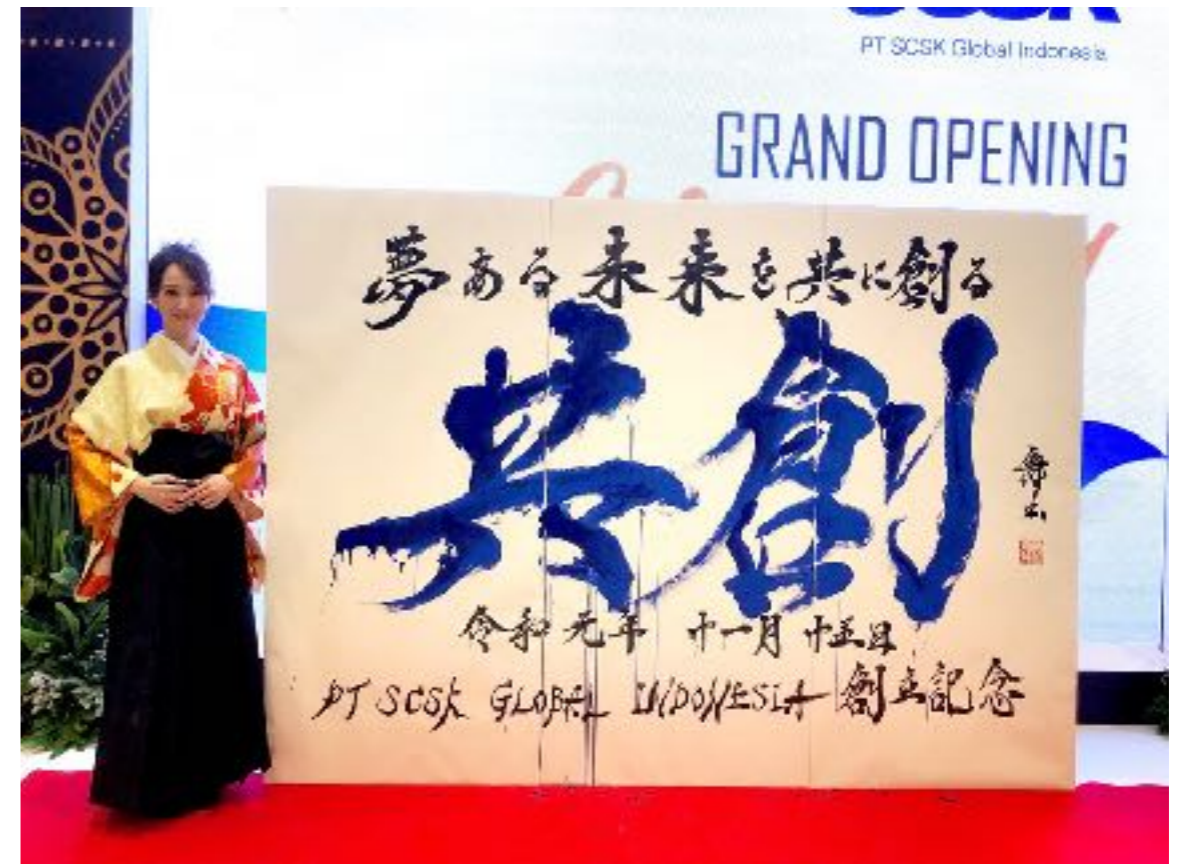 PT SCSK Global Indonesia
GRAND OPENING
夢ある未来を共に創る
共創
令和元年 十一月 十五日
PT SCSK GLOBAL INDONESIA 創立記念